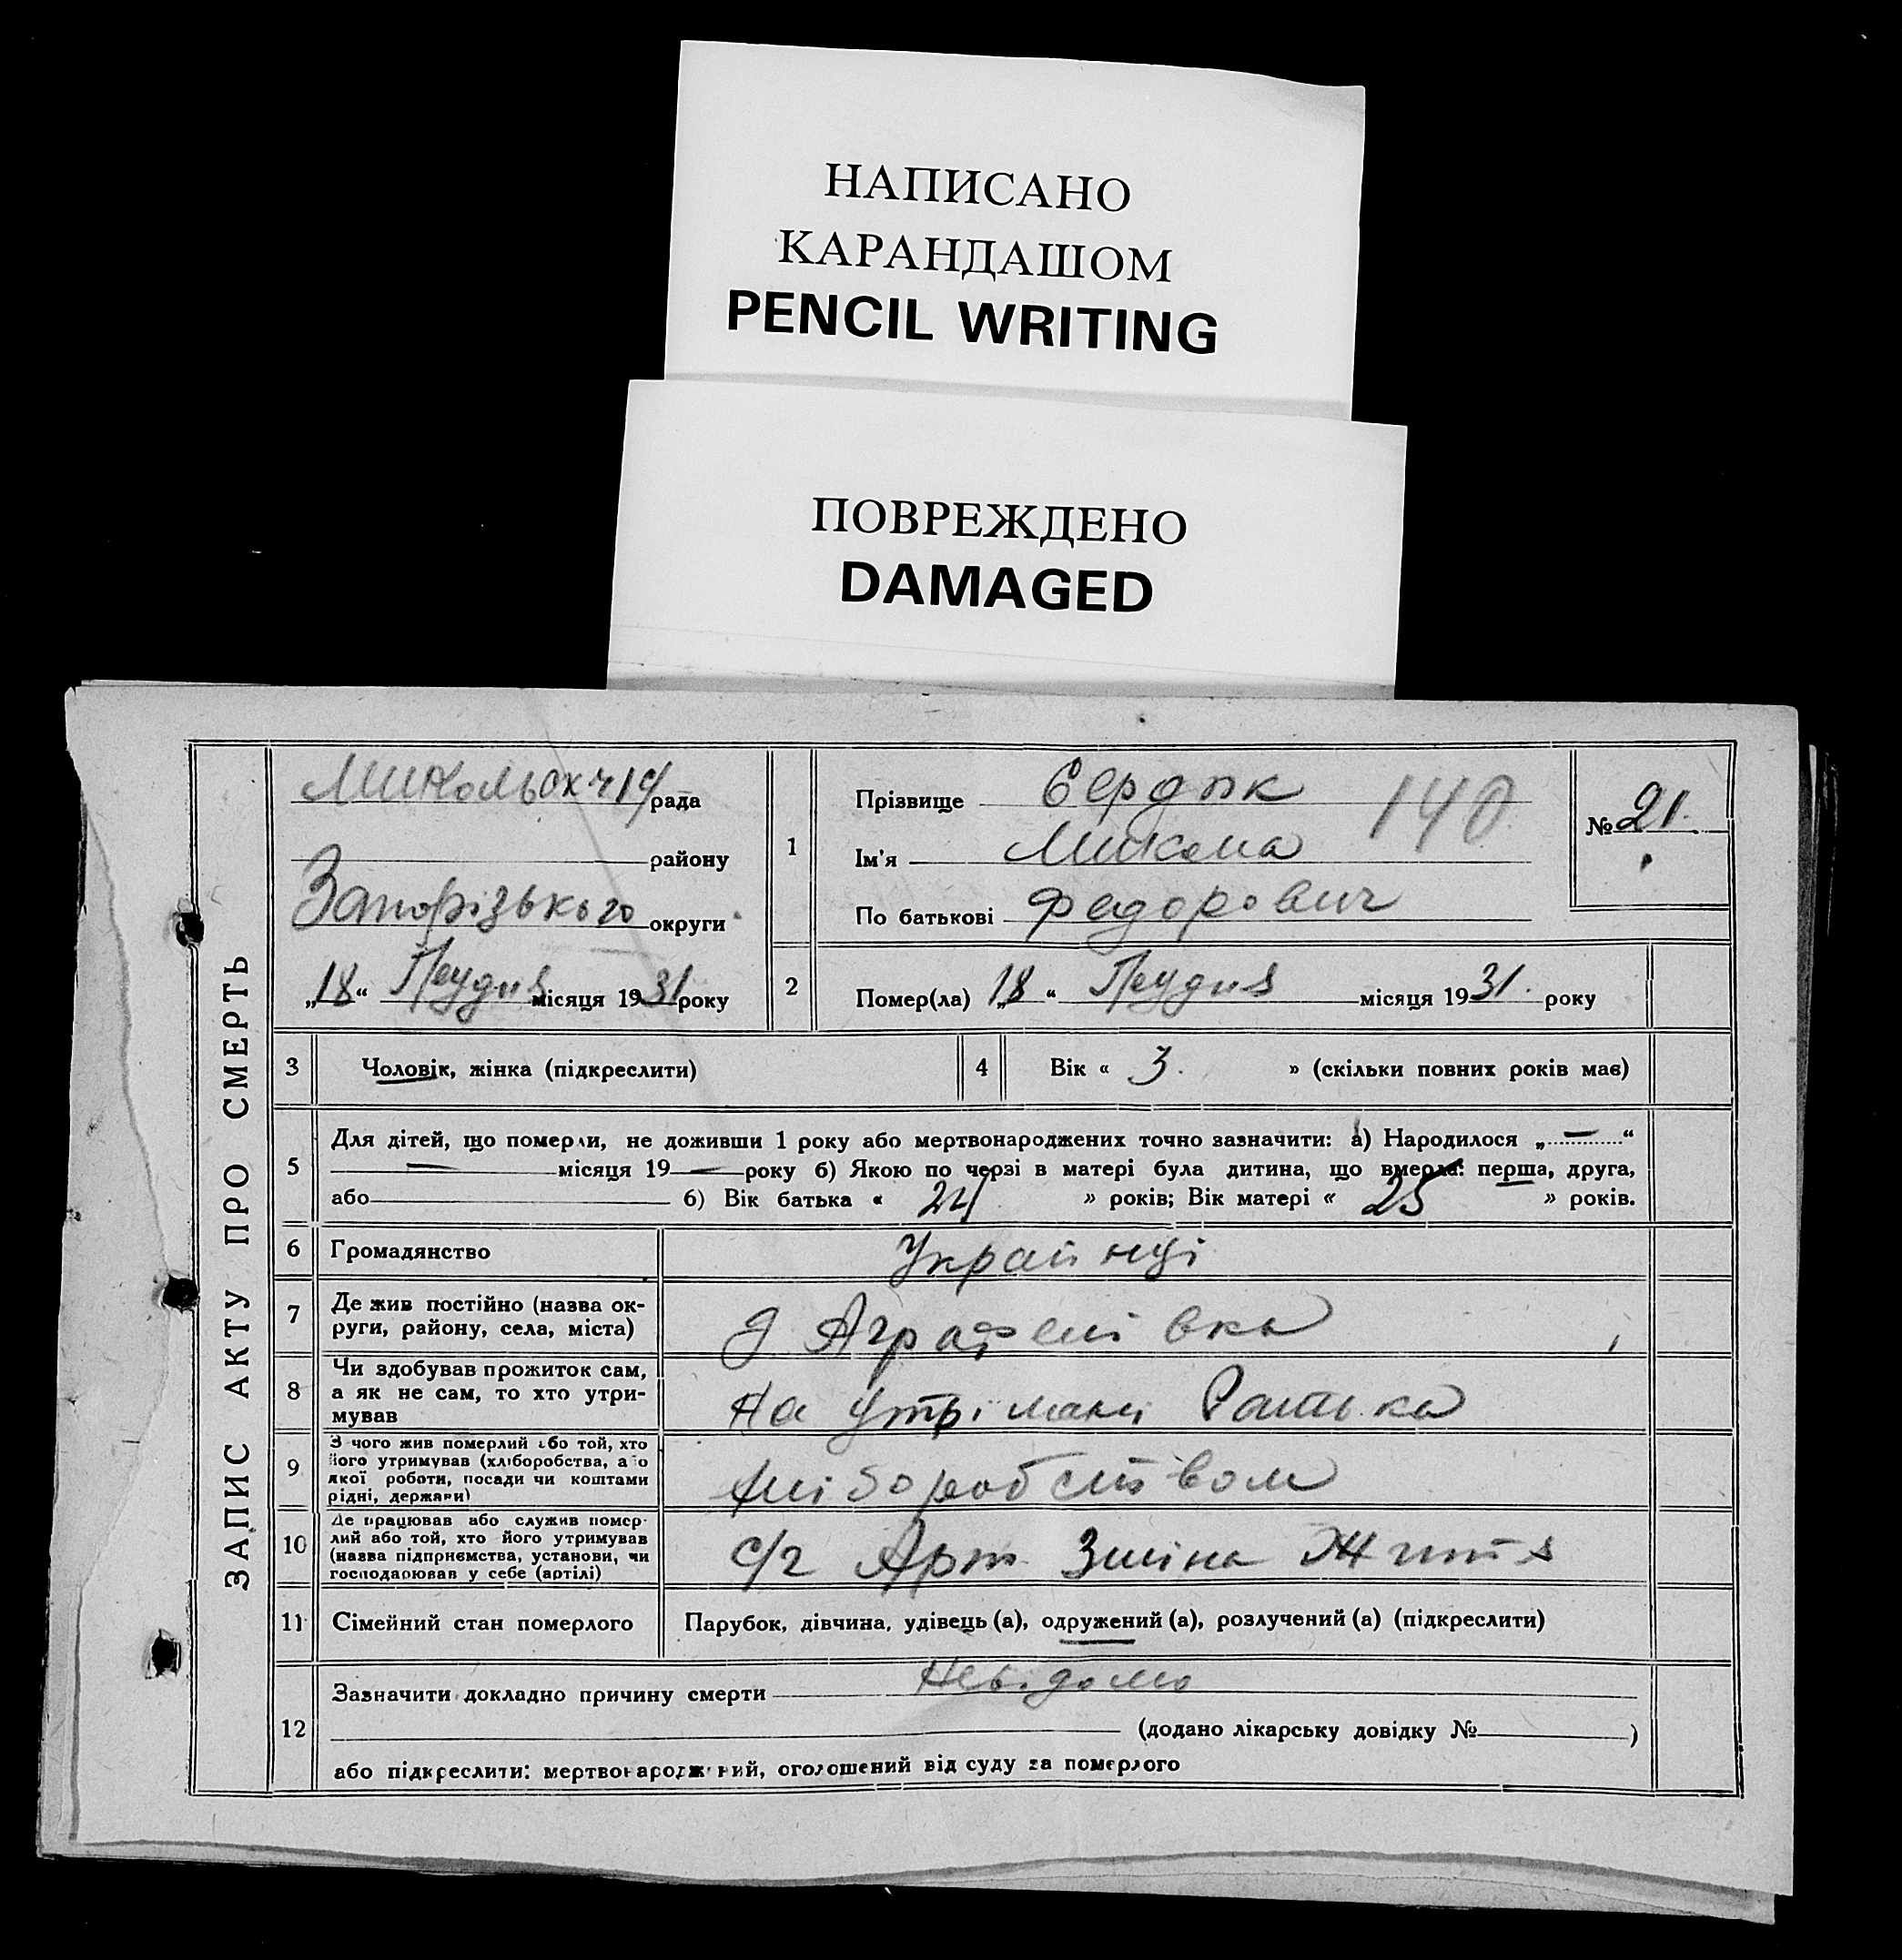 НАПИСАНО
КАРАНДАШОМ
PENCIL WRITING
ПОВРЕЖДЕНО
DAMAGED
ЗАПИС АКТУ ПРО СМЕРТЬ
рада
району
Запорізького округи
„18“ Грудня місяця 1931 року
1
Прізвище Сердюк 140
Ім'я Микола
По батькові Федорович
№ 21.
2 Помер(ла) „18“ Грудня місяця 1931. року
3 Чоловік, жінка (підкреслити)
4 Вік « 3. » (скільки повних років має)
5
Для дітей, що померли, не доживши 1 року або мертвонароджених точно зазначити: а) Народилося „ — “
— місяця 19 — року б) Якою по черзі в матері була дитина, що вмерла: перша, друга,
або б) Вік батька « 24 » років; Вік матері « 25 » років.
6 Громадянство Українці
7 Де жив постійно (назва ок-
руги, району, села, міста)
Аграфенівка
8 Чи здобував прожиток сам,
а як не сам, то хто утри-
мував
На утрімані Батька
9 З чого жив померлий або той, хто
його утримував (хліборобства, або
якої роботи, посади чи коштами
рідні, держави)
Хліборобством
10 Де працював або служив помер-
лий або той, хто його утримував
(назва підприємства, установи, чи
господарював у себе (артілі)
с/г Арт. Зміна Життя
11 Сімейний стан померлого Парубок, дівчина, удівець (а), одружений (а), розлучений (а) (підкреслити)
12
Зазначити докладно причину смерти Невідомо
(додано лікарську довідку № )
або підкреслити: мертвонароджений, оголошений від суду за померлого